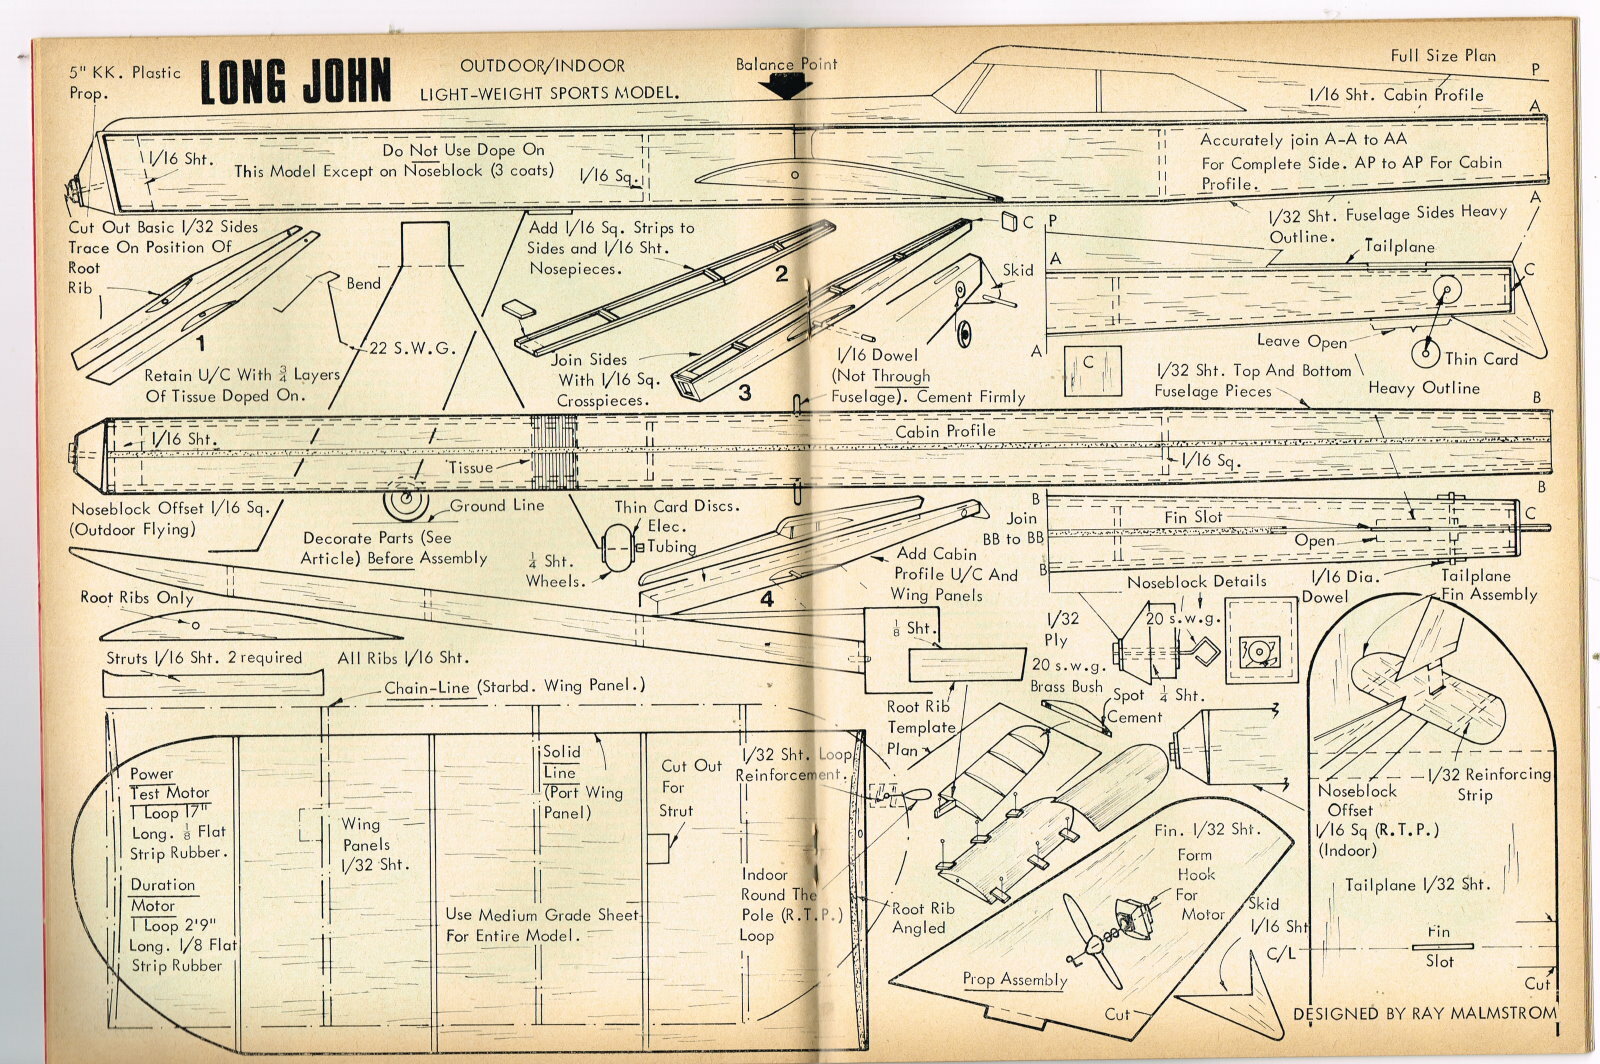 5" KK. Plastic
Prop.
LONG JOHN
OUTDOOR/INDOOR
LIGHT-WEIGHT SPORTS MODEL.
Balance Point
Full Size Plan
P
1/16 Sht. Cabin Profile
A
1/16 Sht.
Do Not Use Dope On
This Model Except on Noseblock (3 coats)
1/16 Sq.
Accurately join A-A to AA
For Complete Side. AP to AP For Cabin
Profile.
A
Cut Out Basic 1/32 Sides
Trace On Position Of
Root
Rib
1
Bend
22 S.W.G.
Retain U/C With 3/4 Layers
Of Tissue Doped On.
Add 1/16 Sq. Strips to
Sides and 1/16 Sht.
Nosepieces.
2
Join Sides
With 1/16 Sq.
Crosspieces.
3
C
P
Skid
1/16 Dowel
(Not Through
Fuselage). Cement Firmly
1/32 Sht. Fuselage Sides Heavy
Outline.
Tailplane
A
C
A
Leave Open
Thin Card
C
1/32 Sht. Top And Bottom
Fuselage Pieces
Heavy Outline
B
1/16 Sht.
Tissue
Cabin Profile
1/16 Sq.
B
Noseblock Offset 1/16 Sq.
(Outdoor Flying)
Ground Line
Decorate Parts (See
Article) Before Assembly
Thin Card Discs.
Elec.
Tubing
1/4 Sht.
Wheels.
4
Add Cabin
Profile U/C And
Wing Panels
Join
BB to BB
B
B
Fin Slot
Open
C
Noseblock Details
1/16 Dia.
Dowel
Tailplane
Fin Assembly
Root Ribs Only
Struts 1/16 Sht. 2 required
All Ribs 1/16 Sht.
Chain-Line (Starbd. Wing Panel.)
1/8 Sht.
Root Rib
Template
Plan
1/32
Ply
20 s.w.g.
20 s.w.g.
Brass Bush
1/4 Sht.
Spot
Cement
Power
Test Motor
1 Loop 17"
Long. 1/8 Flat
Strip Rubber.
Duration
Motor
1 Loop 2'9"
Long. 1/8 Flat
Strip Rubber
Wing
Panels
1/32 Sht.
Solid
Line
(Port Wing
Panel)
Cut Out
For
Strut
1/32 Sht. Loop
Reinforcement.
Use Medium Grade Sheet
For Entire Model.
Indoor
Round The
Pole (R.T.P.)
Loop
Root Rib
Angled
Fin. 1/32 Sht.
Form
Hook
For
Motor
Prop Assembly
Cut
Skid
1/16 Sht
C/L
1/32 Reinforcing
Strip
Noseblock
Offset
1/16 Sq (R.T.P.)
(Indoor)
Tailplane 1/32 Sht.
Fin
Slot
Cut
DESIGNED BY RAY MALMSTROM